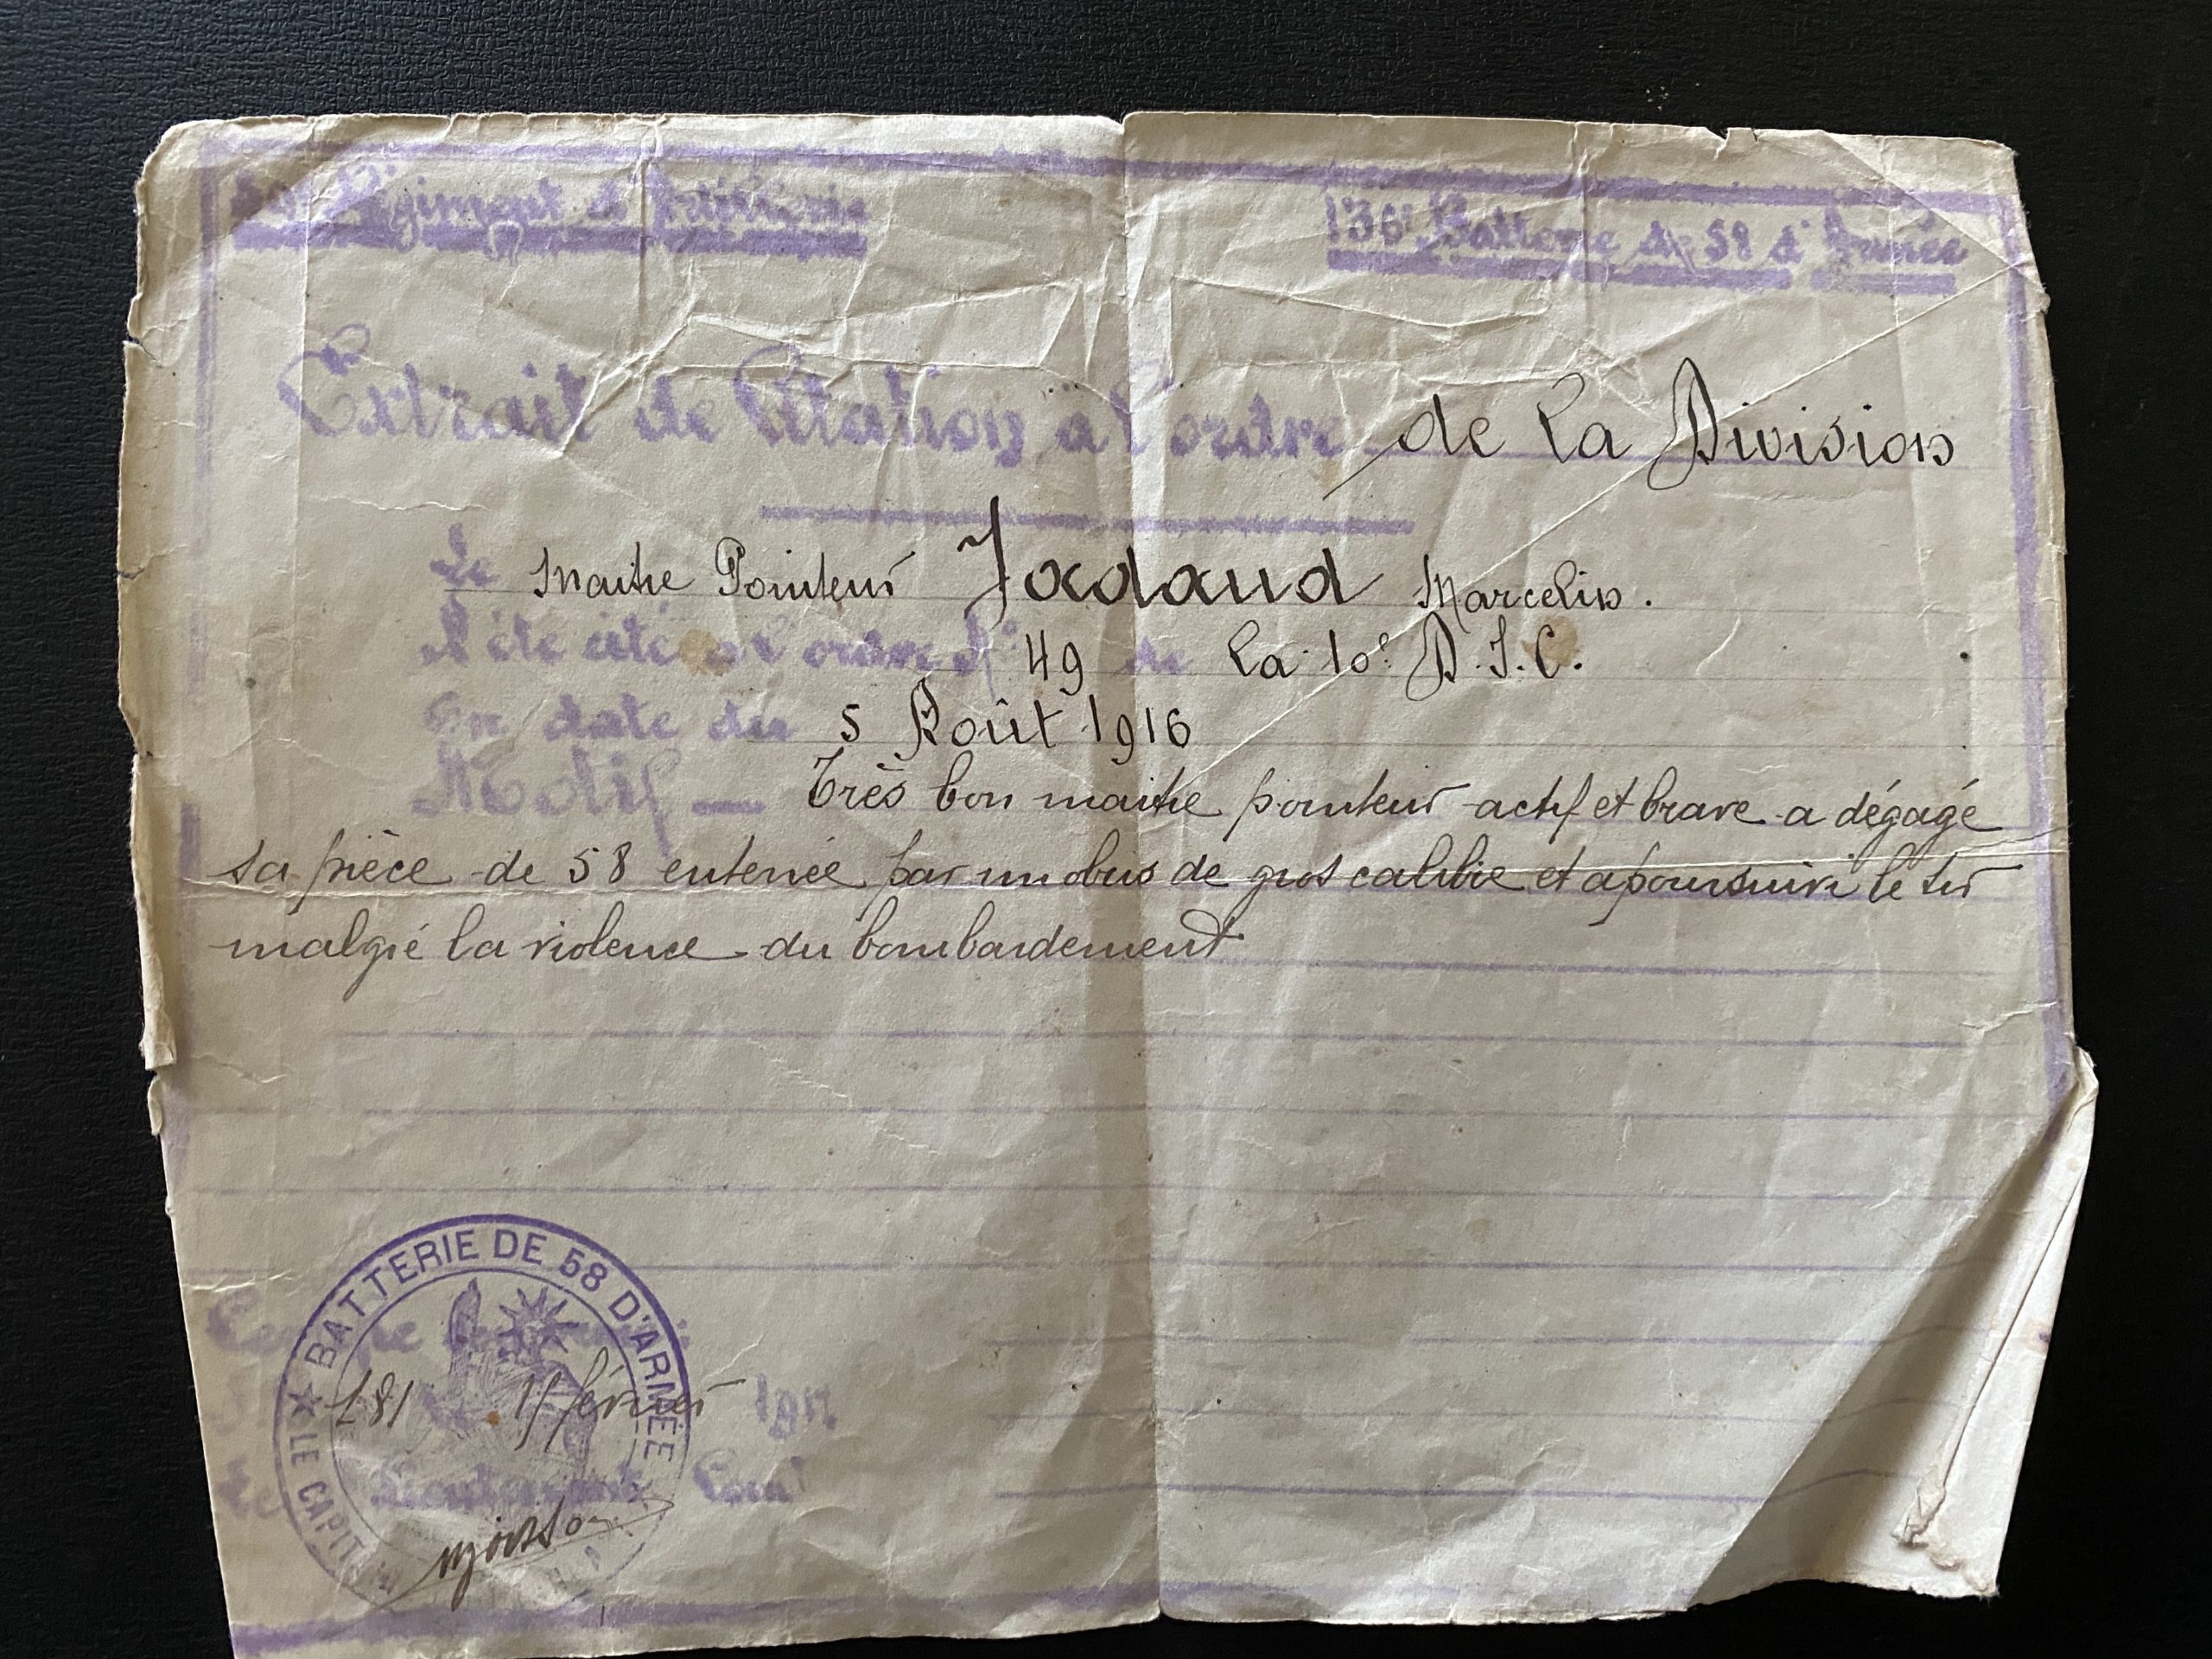 Régiment d'Artillerie
136e Batterie de 58 d'Armée
Extrait de Citation à l'ordre de la Division
Le Maitre Pointeur Jadaud Marcelin.
A été cité à l'ordre N° 49 de la 10e D.I.C.
En date du 5 Août 1916
Motif — Très bon maitre pointeur actif et brave a dégagé
sa pièce de 58 enterrée par un obus de gros calibre et a poursuivi le tir
malgré la violence du bombardement
BATTERIE DE 58 D'ARMÉE
LE CAPITAINE
février 191
Le Lieutenant Comt